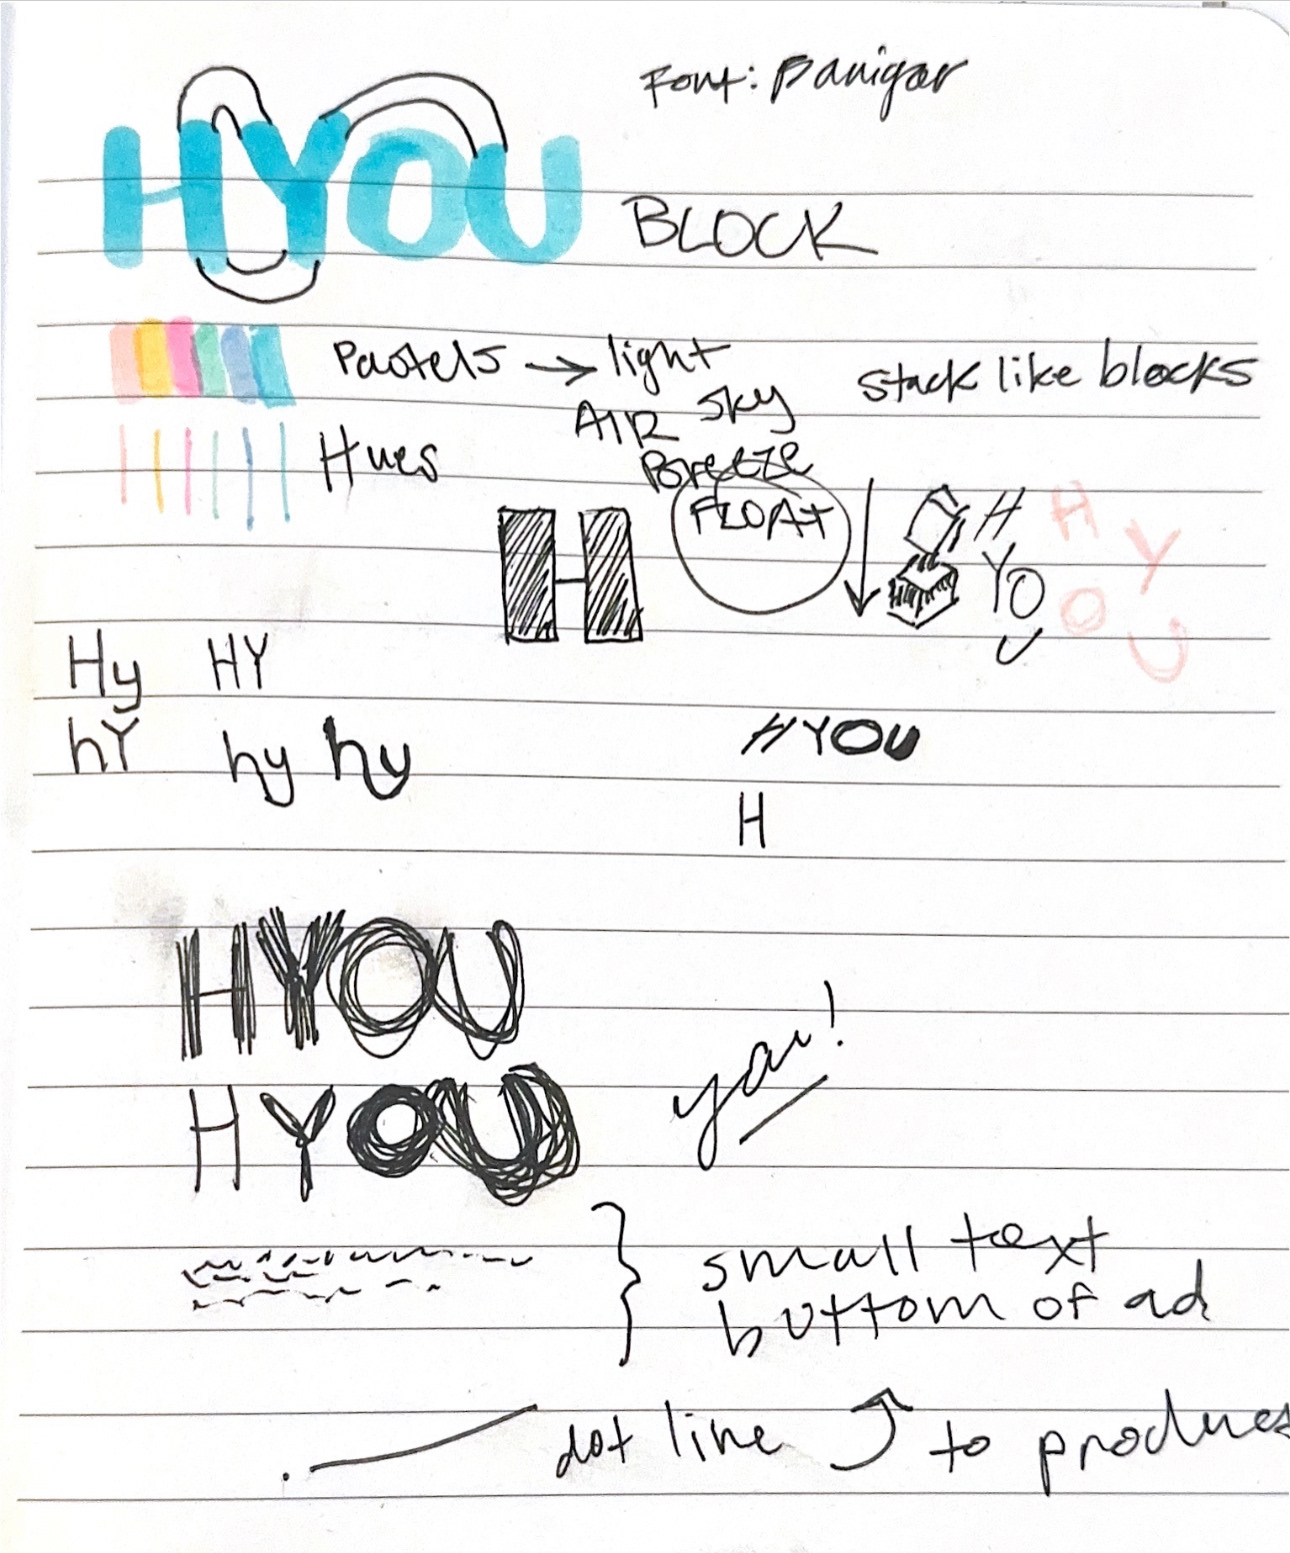 HYOU
Font: Panigar
BLOCK
Pastels → light
AIR sky
Breeze
FLOAT
stack like blocks
Hues
H
H
YO
U
H Y
O U
Hy HY
hY hy hy
HYOU
H
HYOU
yay!
HYOU
small text
bottom of ad
dot line to produces